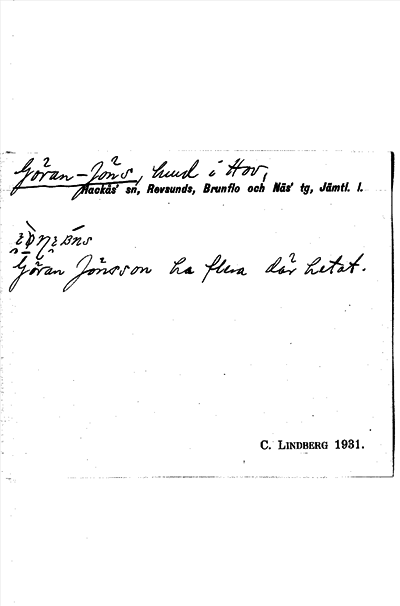 Göran-Jöns, hmd i Hov,
Hackås' sn, Revsunds, Brunflo och Näs' tg, Jämtl. l.
Göran Jönsson ha flera där hetat.
C. LINDBERG 1931.